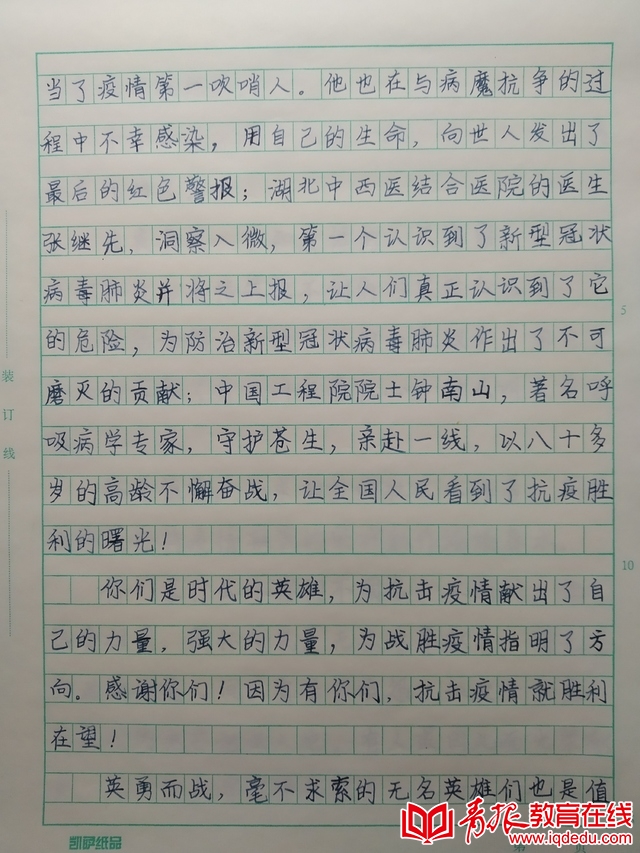 当了疫情第一吹哨人。他也在与病魔抗争的过
程中不幸感染，用自己的生命，向世人发出了
最后的红色警报；湖北中西医结合医院的医生
张继先，洞察入微，第一个认识到了新型冠状
病毒肺炎并将之上报，让人们真正认识到了它
的危险，为防治新型冠状病毒肺炎作出了不可
磨灭的贡献；中国工程院院士钟南山，著名呼
吸病学专家，守护苍生，亲赴一线，以八十多
岁的高龄不懈奋战，让全国人民看到了抗疫胜
利的曙光！
你们是时代的英雄，为抗击疫情献出了自
己的力量，强大的力量，为战胜疫情指明了方
向。感谢你们！因为有你们，抗击疫情就胜利
在望！
英勇而战，毫不求索的无名英雄们也是值
装订线
5
10
凯萨纸品
第 页
青报教育在线
www.iqdedu.com